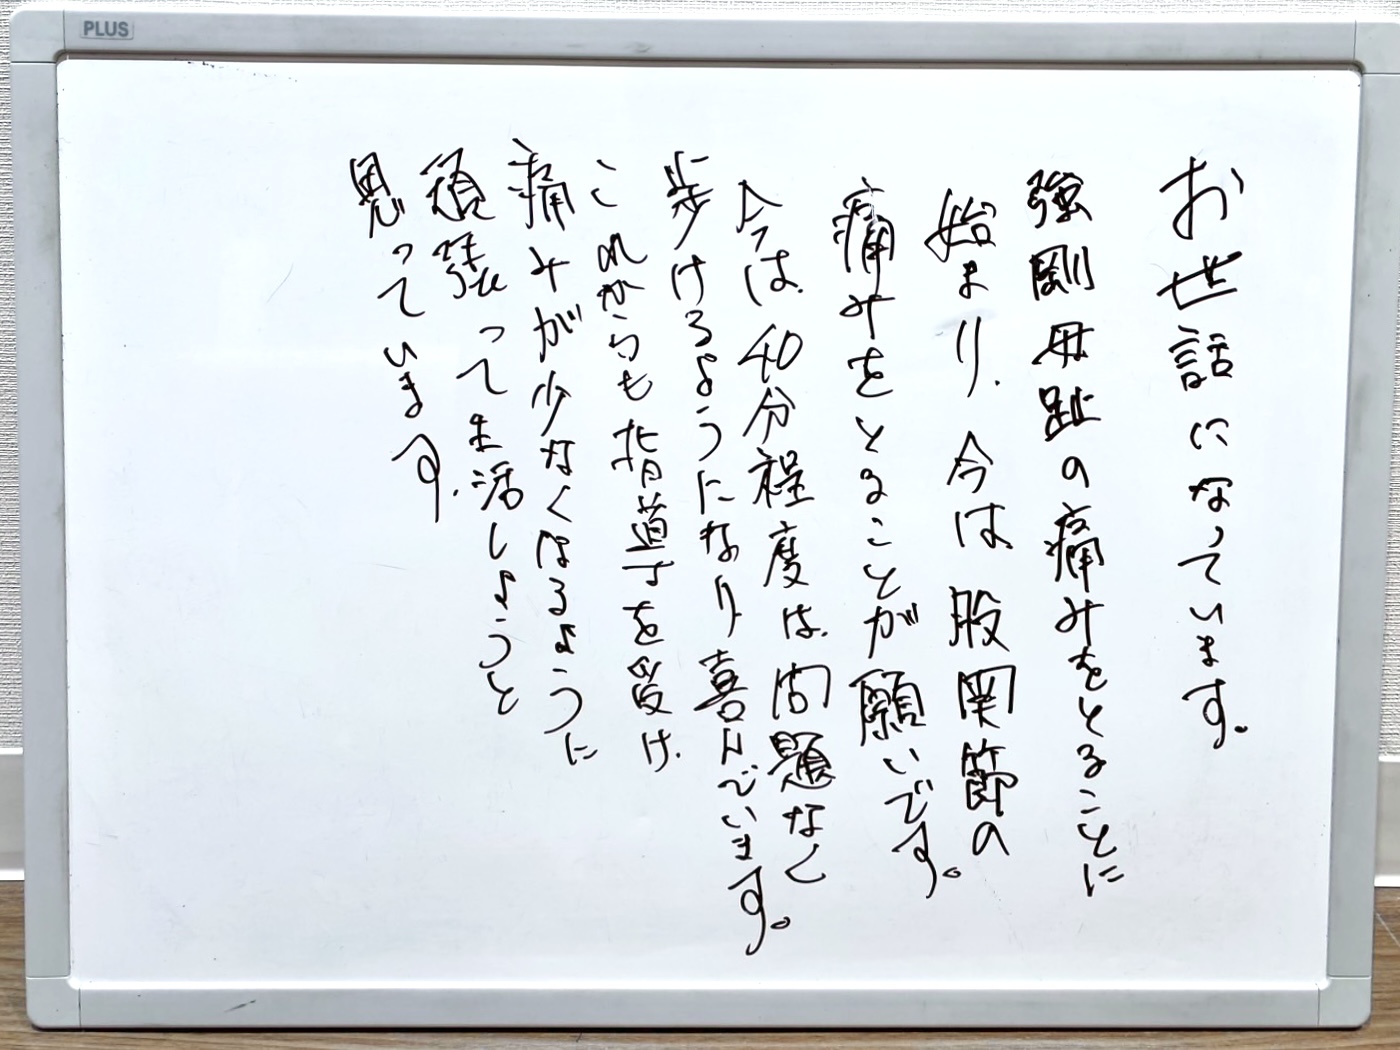 PLUS
お世話になっています。
強剛母趾の痛みをとることに
始まり、今は股関節の
痛みをとることが願いです。
今は、40分程度は、問題なく
歩けるようになり喜んでいます。
これからも指導を受け、
痛みが少なくなるように
頑張って生活しようと
思っています。